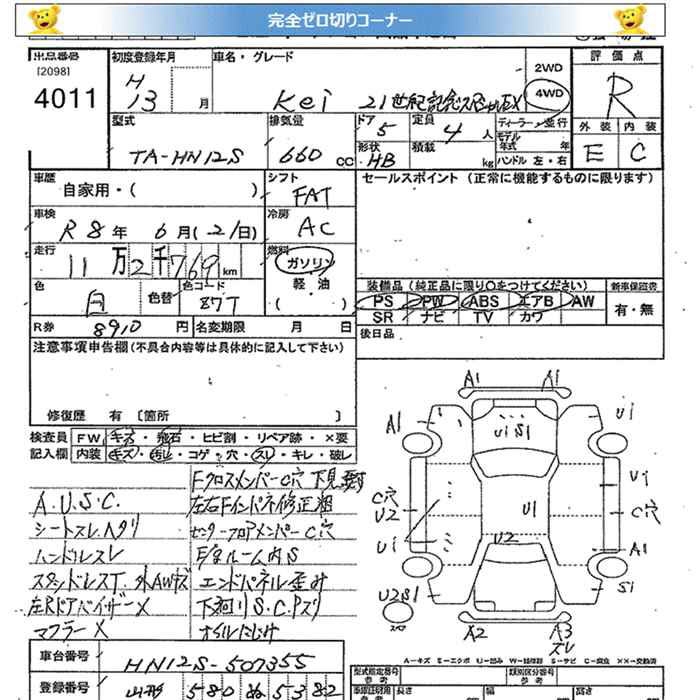 完全ゼロ切りコーナー
出品番号
[2098]
4011
初度登録年月
H 13 月
車名・グレード
Kei 21世紀記念スペシャルEX
2WD
4WD
評価点
R
外装 内装
E C
型式
TA-HN12S
排気量
660 CC
ドア 5
定員 4 人
形状 HB
積載 kg
ディーラー・並行
モデル年式 年
ハンドル 左・右
車歴
自家用・( )
シフト
FAT
セールスポイント(正常に機能するものに限ります)
車検
R8年 6月(21日)
冷房
AC
走行
11万2千769km
燃料
ガソリン
軽・油
( )
色
白
色替
色コード
87T
装備品(純正品に限り○をつけてください)
新車保証書
PS PW ABS エアB AW
SR ナビ TV カワ
有・無
R券 8910円
名変期限 月 日
後日品
注意事項申告欄(不具合内容等は具体的に記入して下さい)
修復歴 有 [箇所 ]
検査員
記入欄
FW キズ・飛石・ヒビ割・リペア跡・×要
内装 キズ・汚レ・コゲ・穴・スレ・キレ・破レ
A.U.S.C.
シートスレ ヘタリ
ハンドルスレ
スタッドレスT. 外AWキズ
左Rドアバイザー×
マフラー×
FクロスメンバーC穴
左右Fインパネ修正粗
センターフロアメンバーC穴
E/gルーム内S
エンドパネル歪み
下廻りS.C.Pズリ
オイルにじみ
A1 A1
A1 U1 S1 U1
U1
C穴 U2 U1 C穴
U1 U2 A1
U2S1 S1
スレ
A2 A3 スレ
A-キズ E-エクボ U-凹み W-補修跡 S-サビ C-腐食 ××-交換済
車台番号
HN12S-507355
登録番号
山形 580 ぬ 5382
型式指定番号
参考
類別区分番号
参考
車検証用
参考
長さ
幅
高さ